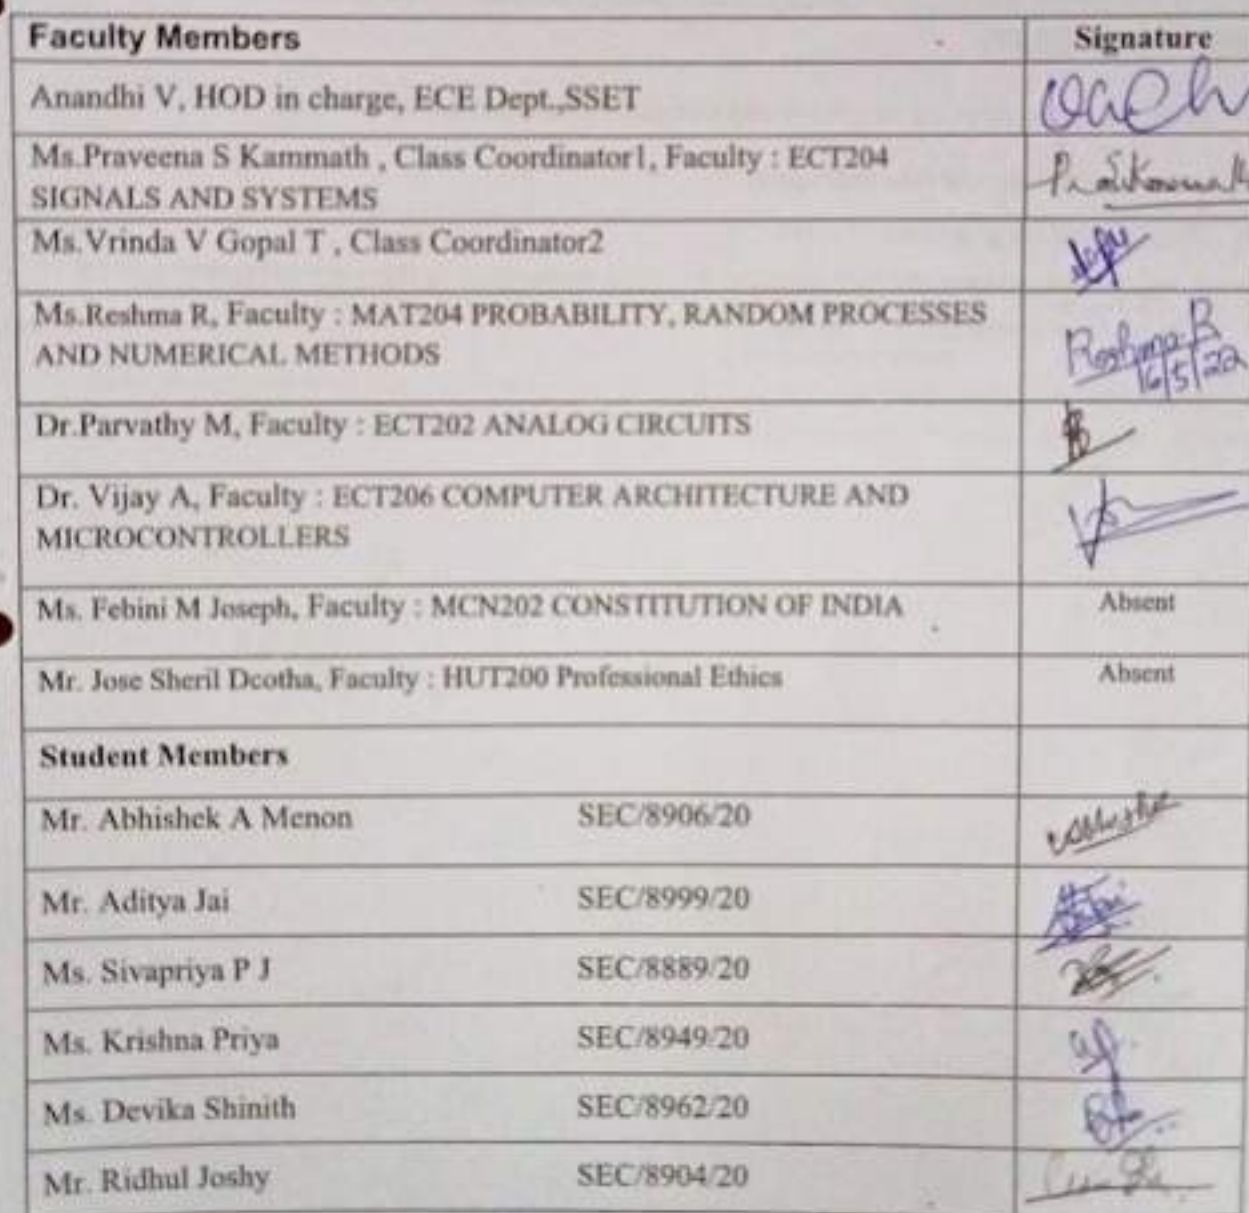 Faculty Members Signature
Anandhi V, HOD in charge, ECE Dept.,SSET
Ms.Praveena S Kammath , Class Coordinator1, Faculty : ECT204
SIGNALS AND SYSTEMS
Ms.Vrinda V Gopal T , Class Coordinator2
Ms.Reshma R, Faculty : MAT204 PROBABILITY, RANDOM PROCESSES
AND NUMERICAL METHODS
Reshma R
16/5/22
Dr.Parvathy M, Faculty : ECT202 ANALOG CIRCUITS
Dr. Vijay A, Faculty : ECT206 COMPUTER ARCHITECTURE AND
MICROCONTROLLERS
Ms. Febini M Joseph, Faculty : MCN202 CONSTITUTION OF INDIA Absent
Mr. Jose Sheril Dcotha, Faculty : HUT200 Professional Ethics Absent
Student Members
Mr. Abhishek A Menon SEC/8906/20
Mr. Aditya Jai SEC/8999/20
Ms. Sivapriya P J SEC/8889/20
Ms. Krishna Priya SEC/8949/20
Ms. Devika Shinith SEC/8962/20
Mr. Ridhul Joshy SEC/8904/20